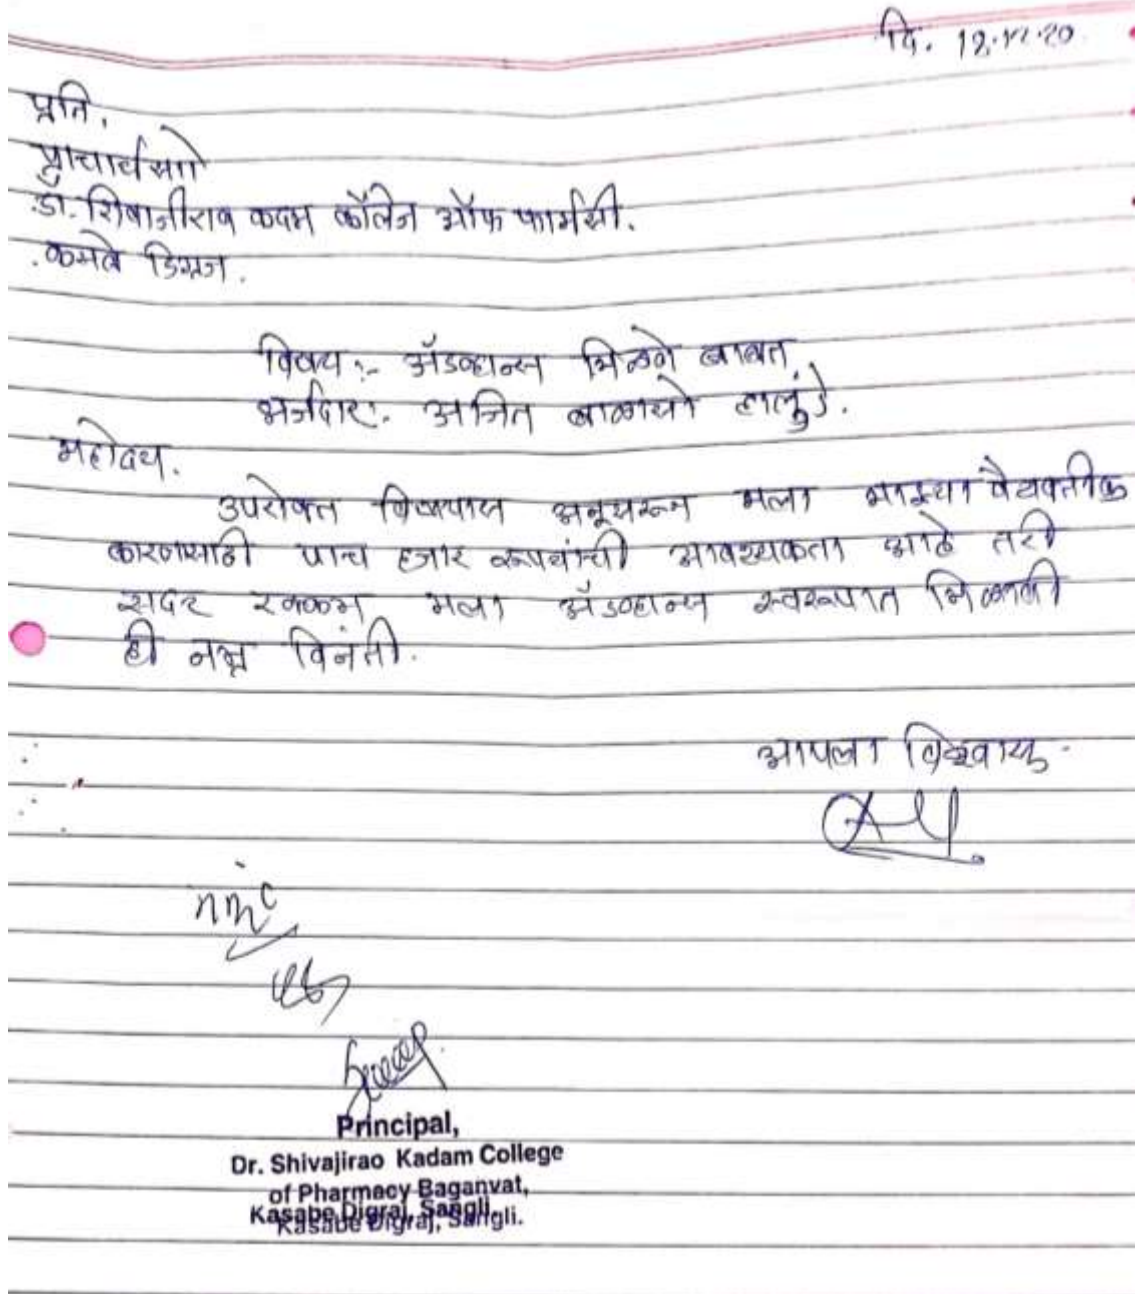 दि. 12.12.20
प्रति,
प्राचार्यसो
डॉ. शिवाजीराव कदम कॉलेज ऑफ फार्मसी.
कसबे डिग्रज.
विषय :- ॲडव्हान्स मिळणे बाबत.
अर्जदार:- अजित बाळासो हालुंडे.
महोदय.
उपरोक्त विषयास अनुसरून मला माझ्या वैयक्तीक
कारणासाठी पाच हजार रूपयांची आवश्यकता आहे तरी
सदर रक्कम मला ॲडव्हान्स स्वरूपात मिळावी
ही नम्र विनंती.
आपला विश्वासू.
Principal,
Dr. Shivajirao Kadam College
of Pharmacy Baganvat,
Kasabe Digraj, Sangli.
Kasabe Digraj, Sangli.